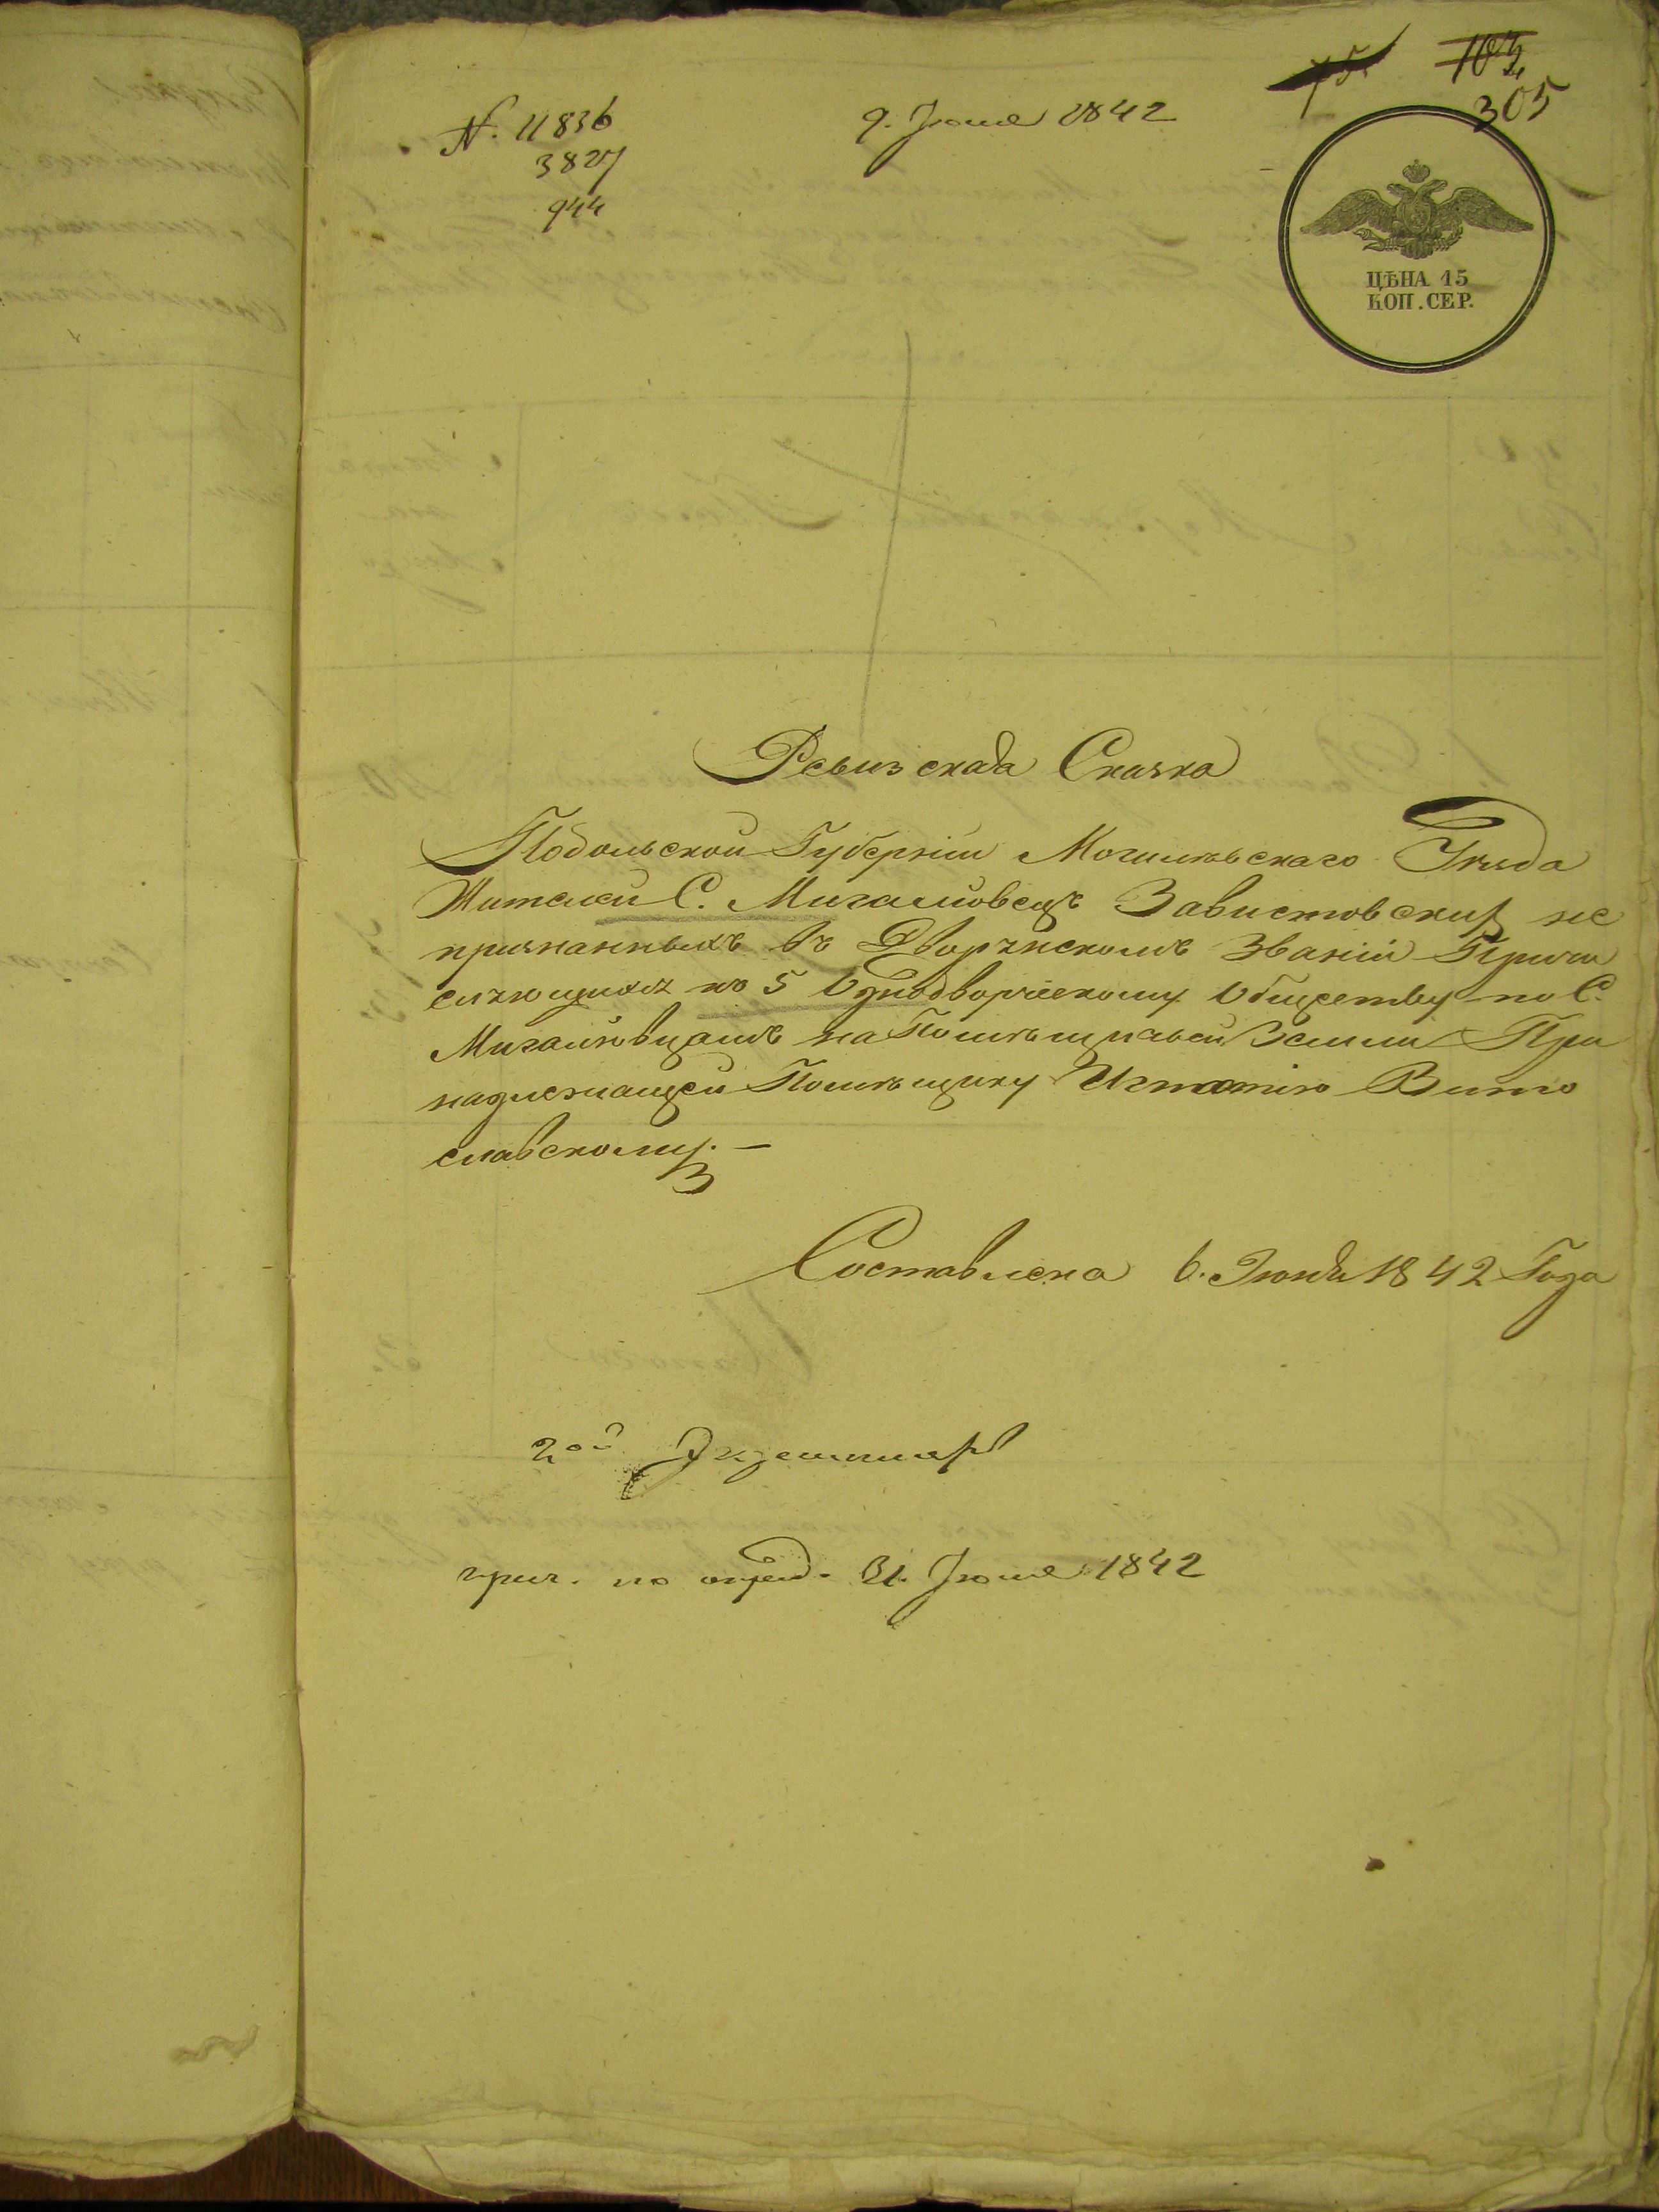 75 103
305
N. 11836
3827
944
9. Июня 1842
ЦѢНА 15
КОП. СЕР.
Ревизская Сказка
Подольской Губерніи Могилевскаго Уѣзда
Жители С. Михайловецъ Завистовских не
признанныхъ въ Дворянскомъ Званіи Причи
сляющихся къ 5 Однодворческому Обществу по С.
Михайловцамъ на Помѣщичьей Земли При
надлежащей Помѣщику Игнатію Вито
славскому. —
Составлена 6. Июня 1842 Года
2ой Экземпляръ
прич. по опред. 31. Июля 1842